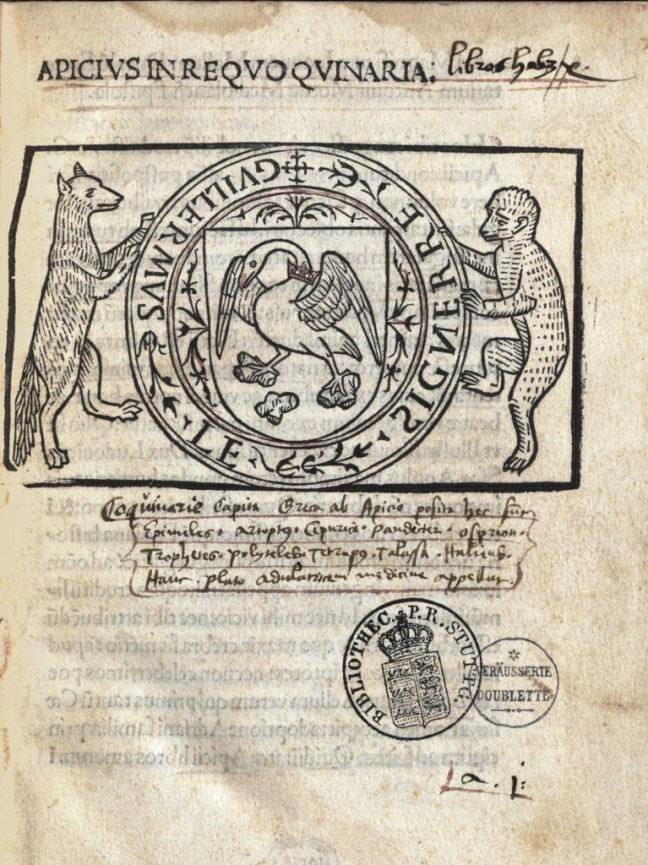 APICIVS IN RE QVOQVINARIA:
GVILLERMVS LE SIGNERRE
Coquinarie Capita Greca ab Apicio posita hec sunt
Epimeles. artoptus. Cepurica. Pandecter. osprion.
Trophetes. Polyteles. Tetrapus. Talassa. Halieus.
Hanc Plato adulatricem medicine appellat.
BIBLIOTHEC. P. R. STUTTG.
VERÄUSSERTE
DOUBLETTE
a. j: